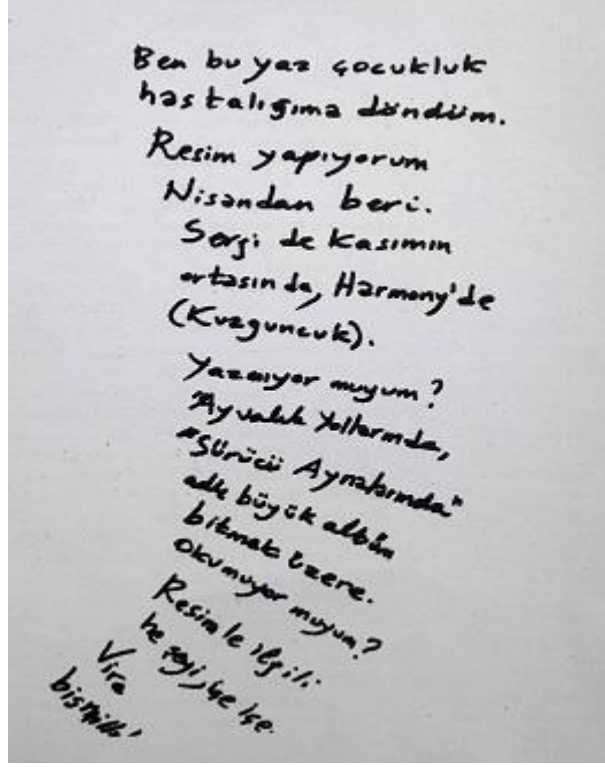 Ben bu yaz çocukluk
hastalığıma döndüm.
Resim yapıyorum
Nisandan beri.
Sergi de Kasımın
ortasında, Harmony'de
(Kuzguncuk).
Yazmıyor muyum?
"Ayvalık Yollarında,
"Sürücü Aynalarında"
adlı büyük albüm
bitmek üzere.
Okumuyor muyum?
Resimle ilgili
he şeyi,
Vira